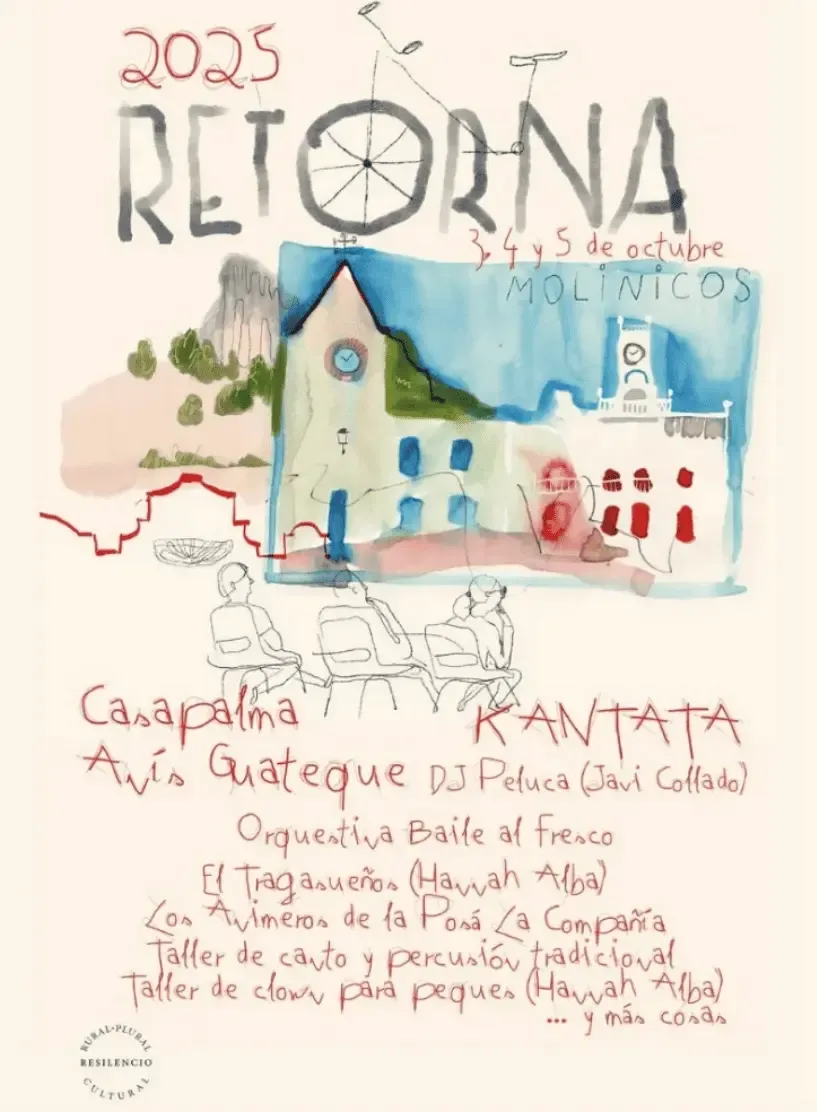 2025
RETORNA
3, 4 y 5 de octubre
MOLINICOS
Casapalma KANTATA
Anís Guateque DJ Peluca (Javi Collado)
Orquestina Baile al fresco
El Tragasueños (Hannah Alba)
Los Animeros de la Posá La Compañía
Taller de canto y percusión tradicional
Taller de clown para peques (Hannah Alba)
... y más cosas
RURAL·PLURAL
RESILENCIO
CULTURAL